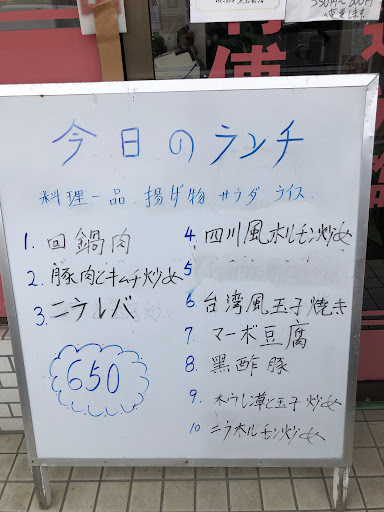 550円〜600円
へ変更します
今日のランチ
料理一品 揚げ物 サラダ ライス
1. 回鍋肉
2. 豚肉とキムチ炒め
3. ニラレバ
650
4. 四川風ホルモン炒め
5
6 台湾風玉子焼き
7 マーボ豆腐
8 黒酢豚
9 ホウレン草と玉子炒め
10 ニラホルモン炒め